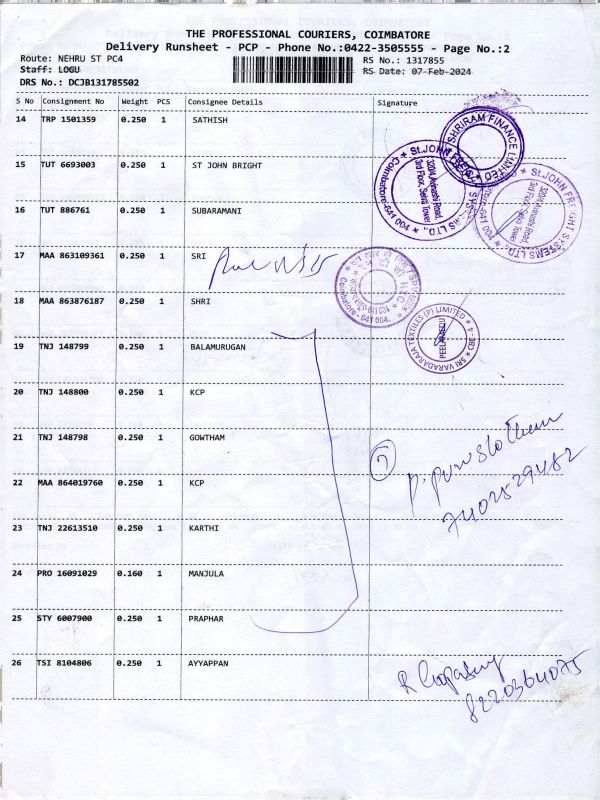 THE PROFESSIONAL COURIERS, COIMBATORE
Delivery Runsheet - PCP - Phone No.:0422-3505555 - Page No.:2
Route: NEHRU ST PC4
RS No.: 1317855
Staff: LOGU
RS Date: 07-Feb-2024
DRS No.: DCJB131785502
S No Consignment No Weight PCS Consignee Details Signature
14 TRP 1501359 0.250 1 SATHISH
SHRIRAM FINANCE LIMITED
15 TUT 6693003 0.250 1 ST JOHN BRIGHT
16 TUT 886761 0.250 1 SUBARAMANI
ST.JOHN FREIGHT SYSTEMS LTD.,
320/4 Avinashi Road,
3rd Floor, Selva Tower
Coimbatore-641 004
17 MAA 863109361 0.250 1 SRI
18 MAA 863876187 0.250 1 SHRI
SRI VARADARAJA TEXTILES (P) LIMITED
PEELAMEDU
CBE - 4
19 TNJ 148799 0.250 1 BALAMURUGAN
20 TNJ 148800 0.250 1 KCP
21 TNJ 148798 0.250 1 GOWTHAM
7
7402529482
22 MAA 864019760 0.250 1 KCP
23 TNJ 22613510 0.250 1 KARTHI
24 PRO 16091029 0.160 1 MANJULA
25 STY 6007900 0.250 1 PRAPHAR
26 TSI 8104806 0.250 1 AYYAPPAN
8220364075